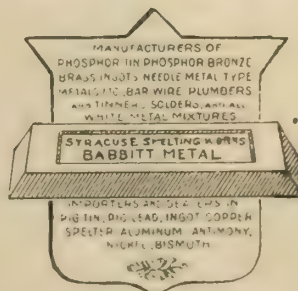 MANUFACTURERS OF
PHOSPHOR TIN PHOSPHOR BRONZE
BRASS INGOTS NEEDLE METAL TYPE
METALS, BAR WIRE PLUMBERS
AND TINNERS SOLDERS, AND ALL
WHITE METAL MIXTURES
SYRACUSE SMELTING WORKS
BABBITT METAL
IMPORTERS AND DEALERS IN
PIG TIN, PIG LEAD, INGOT COPPER
SPELTER ALUMINUM ANTIMONY,
NICKEL, BISMUTH